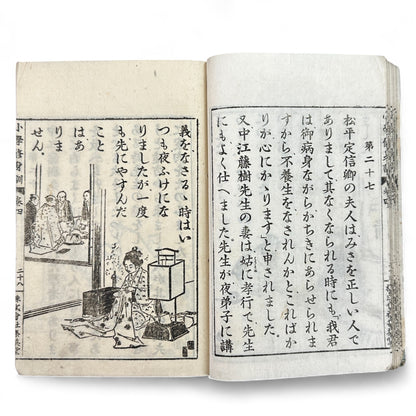 第二十七
松平定信卿の夫人はみさを正しい人で
ありまして其なくなられる時にも「我君
は御病身ながらかちきにあらせられま
すから不養生をなされんかとこればか
りが心にかゝります」と申されました。
又中江藤樹先生の妻は姑に孝行で先生
にもよく仕へました。先生が夜弟子に講
義をなさるゝ時はい
つも夜ふけにな
りましたが一度
も先にやすんだ
こと
はあ
りま
せん。
小學修身訓 卷四
二十八